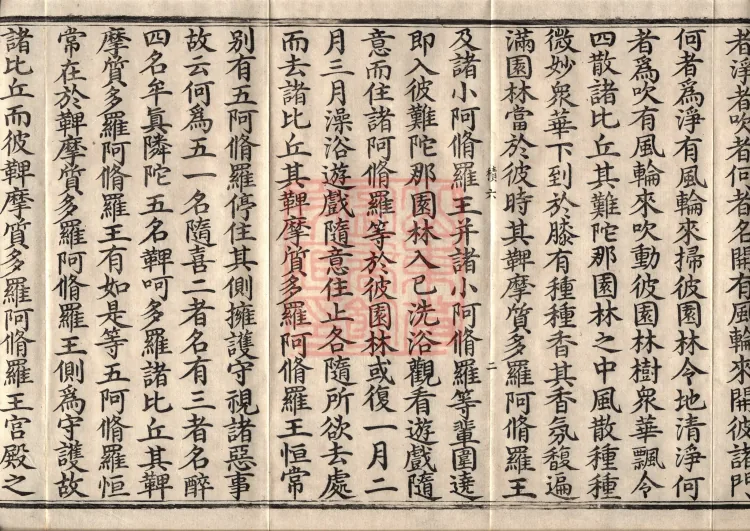 者淨者吹者何者名開有風輪來開彼諸門
何者爲淨有風輪來掃彼園林令地清淨何
者爲吹有風輪來吹動彼園林樹衆華飄令
四散諸比丘其難陀那園林之中風散種種
微妙衆華下到於膝有種種香其香氛馥遍
滿園林當於彼時其鞞摩質多羅阿脩羅王
積六
二
及諸小阿脩羅王并諸小阿脩羅等輩圍遶
即入彼難陀那園林入已洗浴觀看遊戲隨
意而住諸阿脩羅等於彼園林或復一月二
月三月澡浴遊戲隨意住止各隨所欲去處
而去諸比丘其鞞摩質多羅阿脩羅王恒常
別有五阿脩羅停住其側擁護守視諸惡事
故云何為五一名隨喜二者名有三者名醉
四名牟真隣陀五名鞞呵多羅諸比丘其鞞
摩質多羅阿脩羅王有如是等五阿脩羅恒
常在於鞞摩質多羅阿脩羅王側為守護故
諸比丘而彼鞞摩質多羅阿脩羅王宮殿之